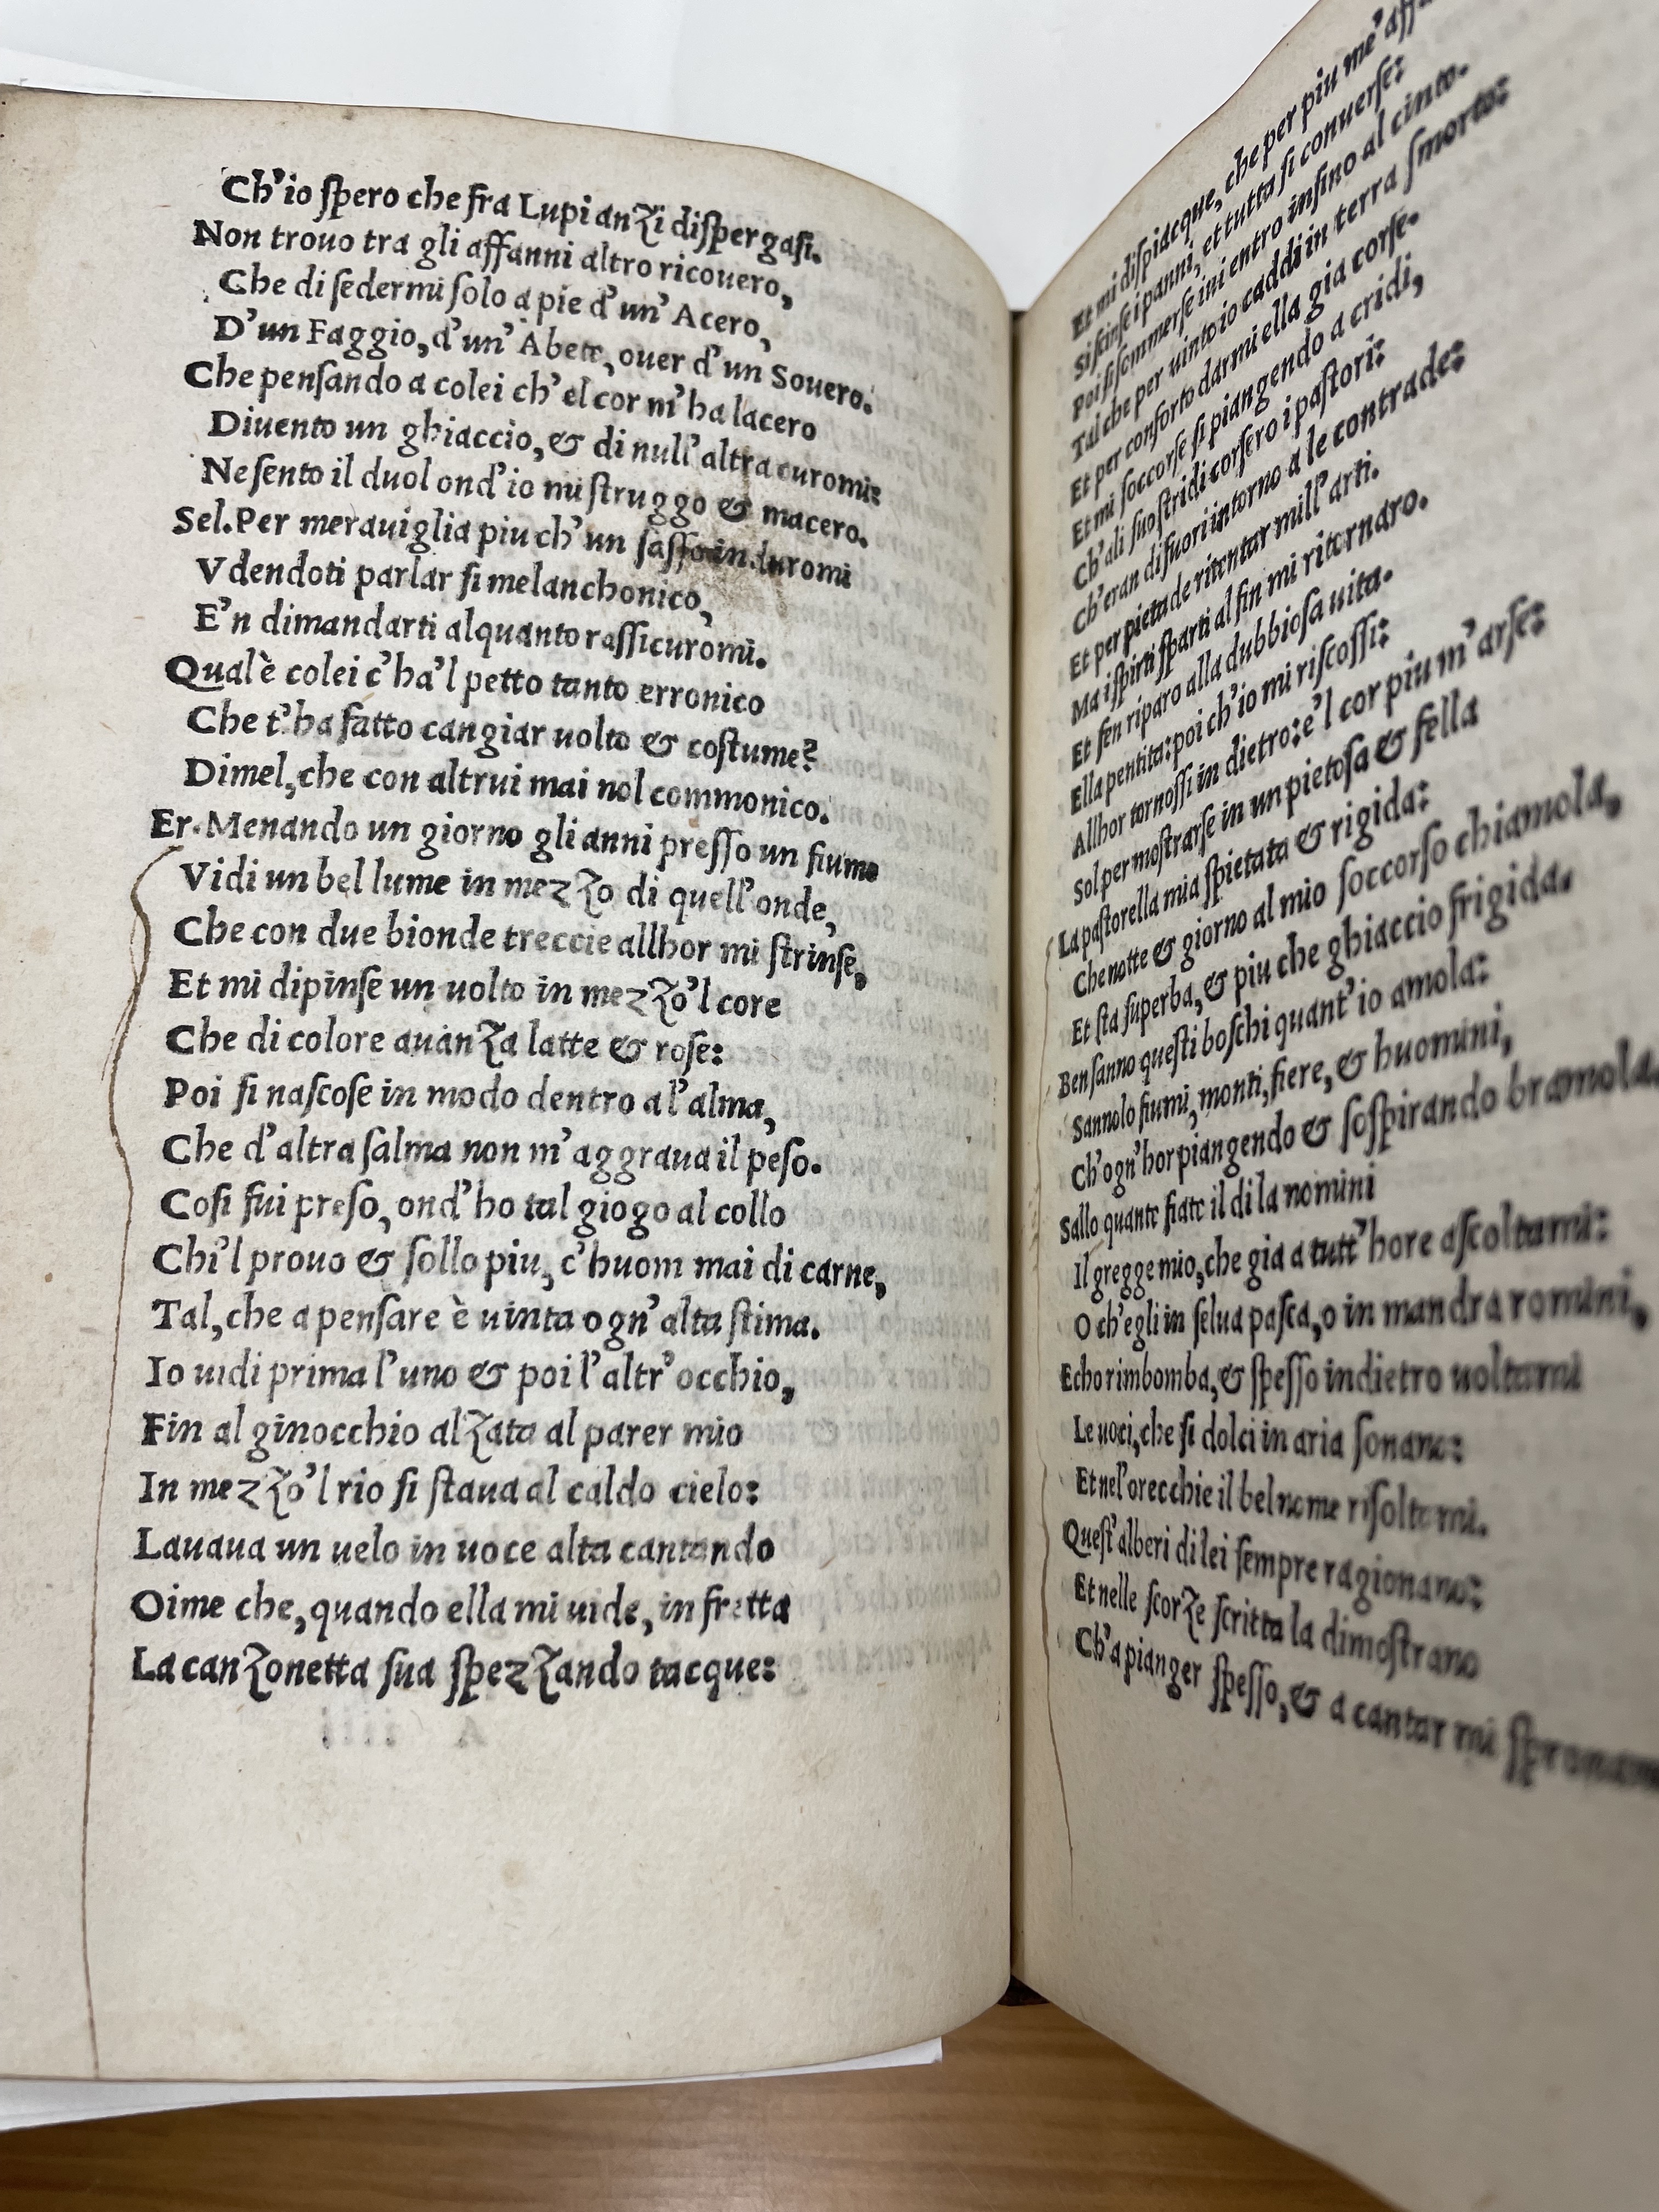 Ch'io ſpero che fra Lupi anzi diſpergaſi.
Non trouo tra gli affanni altro ricouero,
Che di ſedermi ſolo a pie d'un'Acero,
D'un Faggio, d'un'Abete, ouer d'un Souero.
Che penſando a colei ch'el cor m'ha lacero
Diuento un ghiaccio, & di null'altra curomi:
Ne ſento il duol ond'io mi ſtruggo & macero.
Sel. Per merauiglia piu ch'un ſaſſo induromi
Vdendoti parlar ſi melanchonico,
E'n dimandarti alquanto raſſicuromi.
Qual è colei c'ha'l petto tanto erronico
Che t'ha fatto cangiar uolto & coſtume?
Dimel, che con altrui mai nol commonico.
Er. Menando un giorno gli anni preſſo un fiume
Vidi un bel lume in mezzo di quell'onde,
Che con due bionde treccie allhor mi ſtrinſe,
Et mi dipinſe un uolto in mezzo'l core
Che di colore auanza latte & roſe:
Poi ſi naſcoſe in modo dentro al'alma,
Che d'altra ſalma non m'aggraua il peſo.
Coſi fui preſo, ond'ho tal giogo al collo
Chi'l prouo & ſollo piu, c'huom mai di carne,
Tal, che a penſare è uinta ogn'alta ſtima.
Io uidi prima l'uno & poi l'altr'occhio,
Fin al ginocchio alzata al parer mio
In mezzo'l rio ſi ſtaua al caldo cielo:
Lauaua un uelo in uoce alta cantando
Oime che, quando ella mi uide, in fretta
La canzonetta ſua ſpezzando tacque:
Et mi diſpiacque, che per piu me'
Si ſcinſe i panni, et tutta ſi conuerſe:
Poi ſi ſommerſe ini entro inſino al cinto.
Tal che per uinto io caddi in terra ſmorto:
Et per conforto darmi ella gia corſe.
Et mi ſoccorſe ſi piangendo a cridi,
Ch'ali ſuo ſtridi corſero i paſtori:
Ch'eran di fuori intorno a le contrade:
Et per pieta de ritentar mill'arti.
Ma i ſpirti ſparti al fin mi ritornaro.
Et fen riparo alla dubbioſa uita.
Ella pentita: poi ch'io mi riſcoſſi:
Allhor tornoſſi in dietro: e'l cor piu m'arſe:
Sol per moſtrarſe in un pietoſa & fella
La paſtorella mia ſpietata & rigida:
Che notte & giorno al mio ſoccorſo chiamola,
Et ſta ſuperba, & piu che ghiaccio frigida.
Ben ſanno queſti boſchi quant'io amola:
Sannolo fiumi, monti, fiere, & huomini,
Ch'ogn'hor piangendo & ſoſpirando bramola.
Sallo quante fiate il di la nomini
Il gregge mio, che gia a tutt'hore aſcoltami:
O ch'egli in ſelua paſca, o in mandra romini,
Echo rimbomba, & ſpeſſo indietro uoltami
Le uoci, che ſi dolci in aria ſonano:
Et nel'orecchie il bel nome riſoltami.
Queſt'alberi di lei ſempre ragionano:
Et nelle ſcorze ſcritta la dimoſtrano
Ch'a pianger ſpeſſo, & a cantar mi